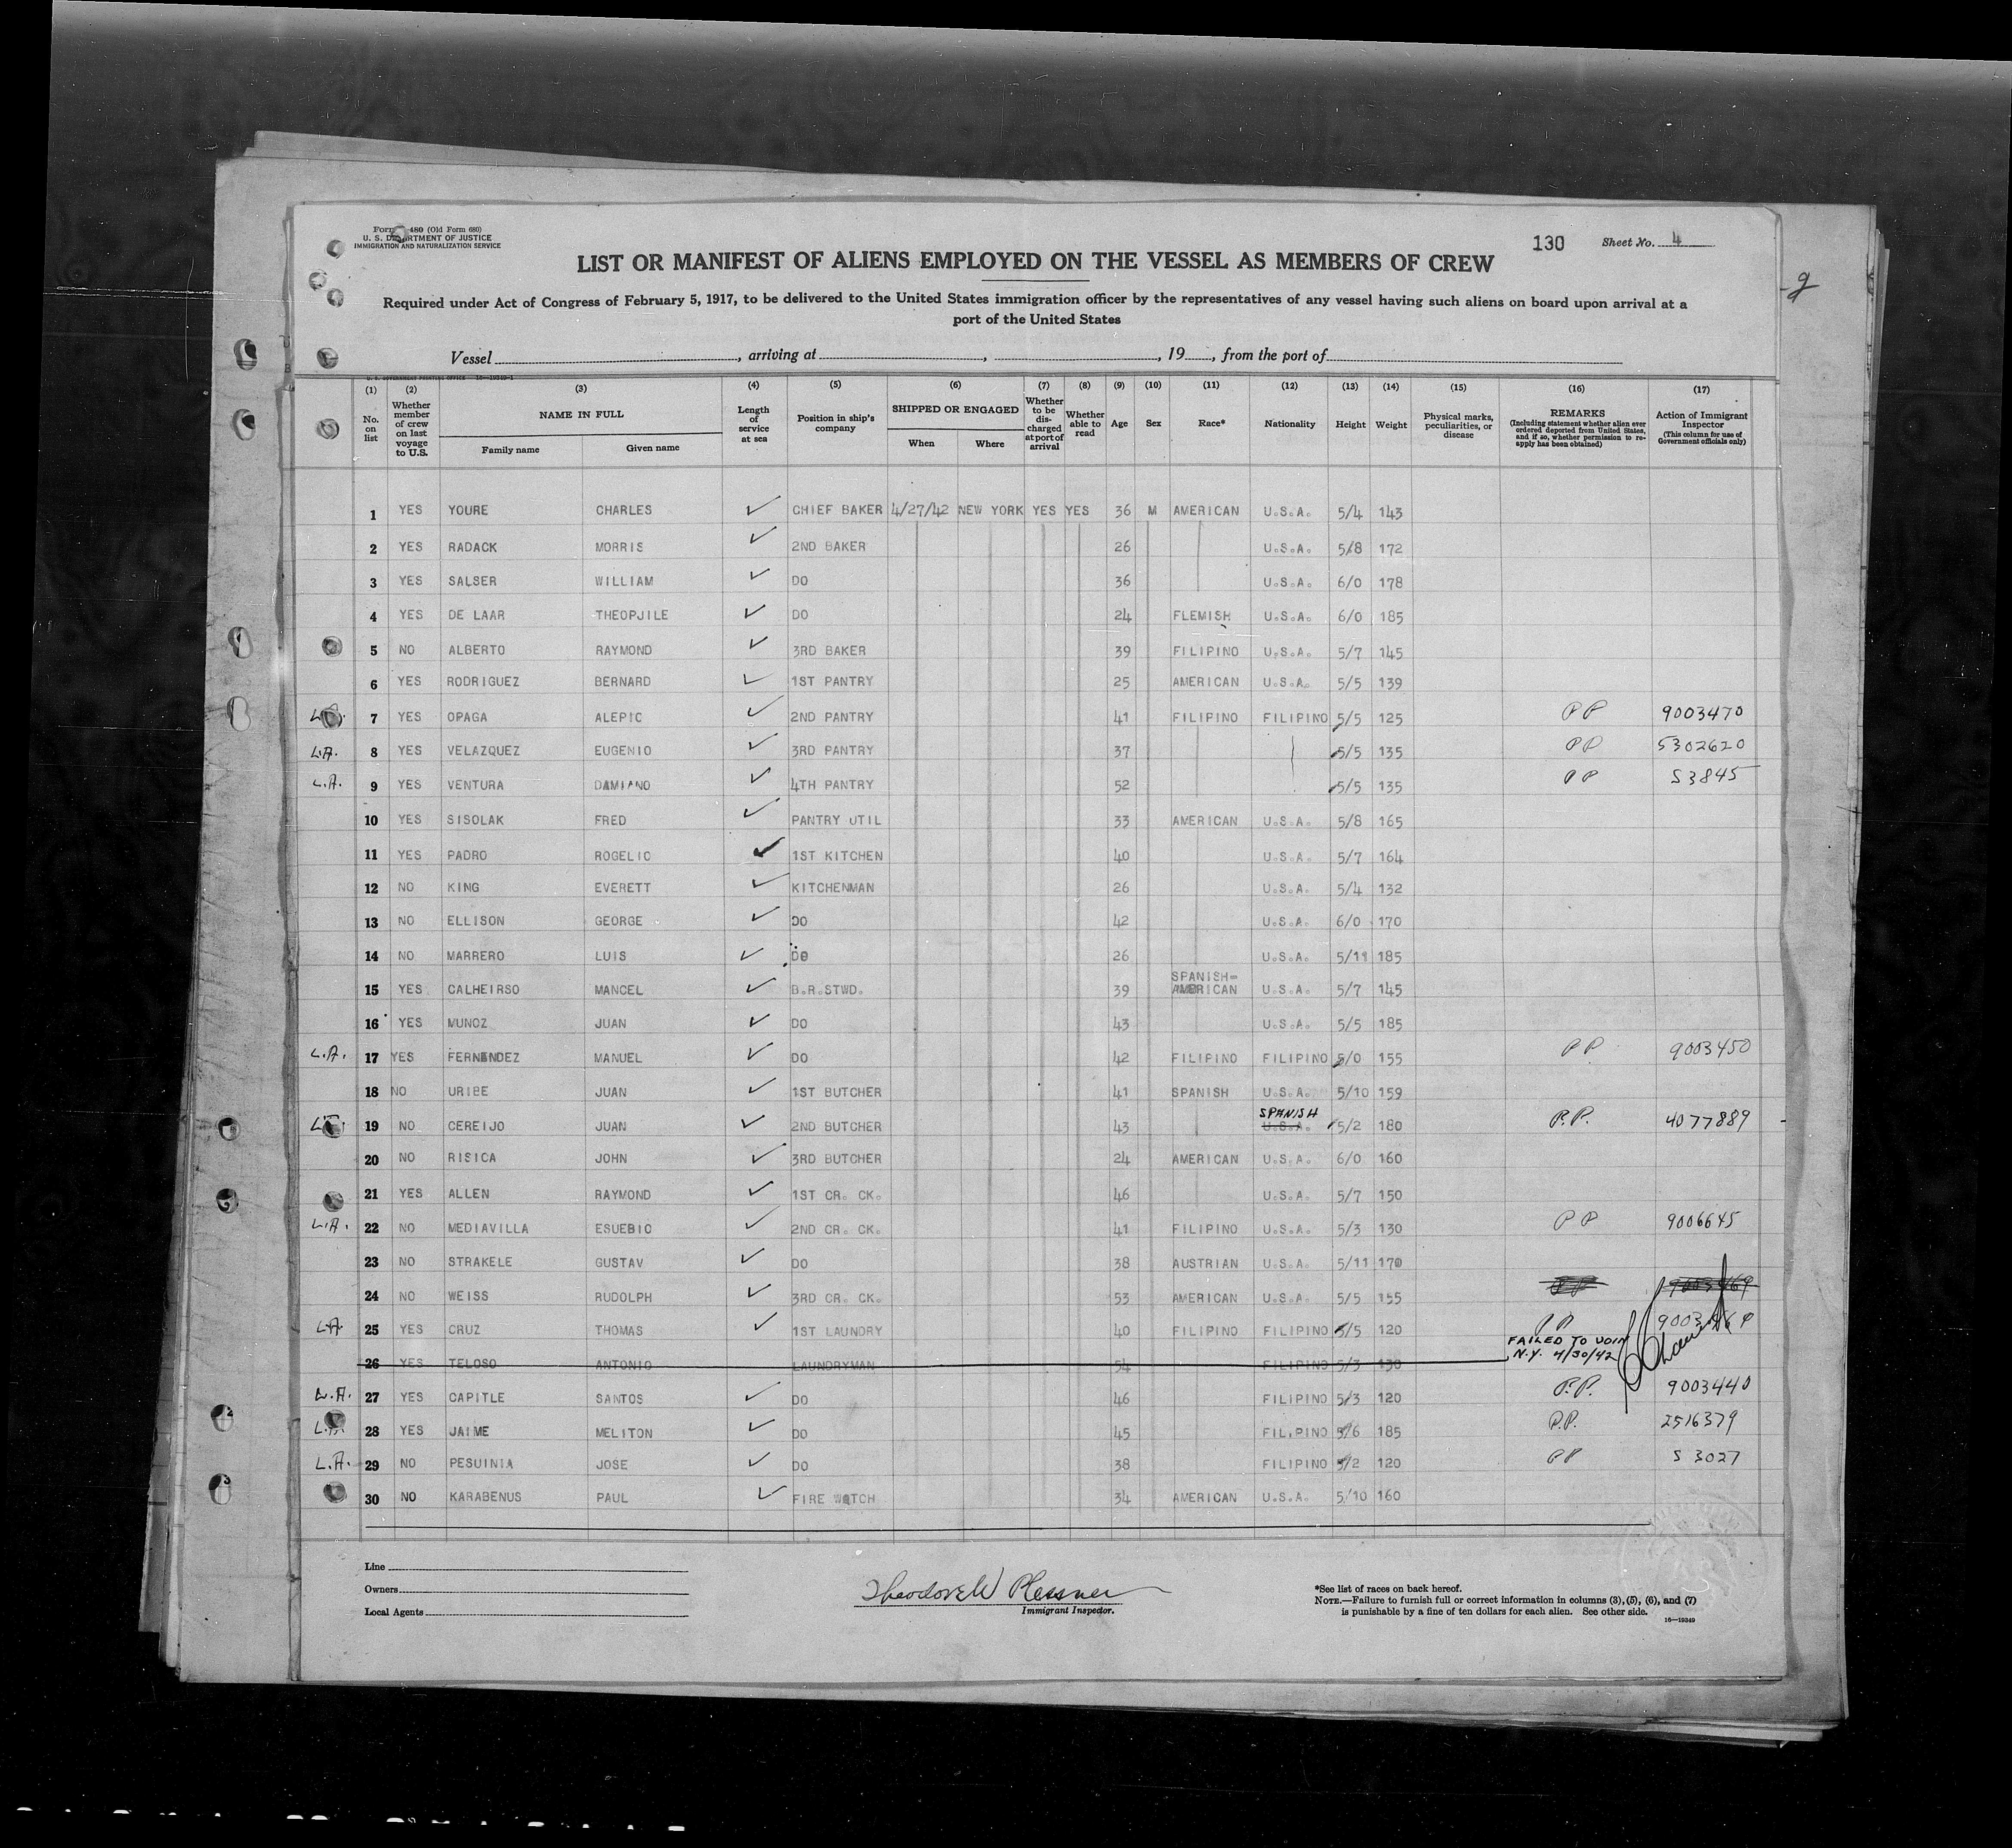 Form 480 (Old Form 680)
U. S. DEPARTMENT OF JUSTICE
IMMIGRATION AND NATURALIZATION SERVICE
130 Sheet No. 4
LIST OR MANIFEST OF ALIENS EMPLOYED ON THE VESSEL AS MEMBERS OF CREW
Required under Act of Congress of February 5, 1917, to be delivered to the United States immigration officer by the representatives of any vessel having such aliens on board upon arrival at a
port of the United States
Vessel , arriving at , , 19 , from the port of
(1) No. on list
(2) Whether member of crew on last voyage to U.S.
(3) NAME IN FULL
Family name Given name
(4) Length of service at sea
(5) Position in ship's company
(6) SHIPPED OR ENGAGED
When Where
(7) Whether to be discharged at port of arrival
(8) Whether able to read
(9) Age
(10) Sex
(11) Race*
(12) Nationality
(13) Height
(14) Weight
(15) Physical marks, peculiarities, or disease
(16) REMARKS (Including statement whether alien ever ordered deported from United States, and if so, whether permission to reapply has been obtained)
(17) Action of Immigrant Inspector (This column for use of Government officials only)
1 YES YOURE CHARLES ✓ CHIEF BAKER 4/27/42 NEW YORK YES YES 36 M AMERICAN U.S.A. 5/4 143
2 YES RADACK MORRIS ✓ 2ND BAKER 26 U.S.A. 5/8 172
3 YES SALSER WILLIAM ✓ DO 36 U.S.A. 6/0 178
4 YES DE LAAR THEOPJILE ✓ DO 24 FLEMISH U.S.A. 6/0 185
5 NO ALBERTO RAYMOND ✓ 3RD BAKER 39 FILIPINO U.S.A. 5/7 145
6 YES RODRIGUEZ BERNARD ✓ 1ST PANTRY 25 AMERICAN U.S.A. 5/5 139
L.A. 7 YES OPAGA ALEPIC ✓ 2ND PANTRY 41 FILIPINO FILIPINO 5/5 125 PP 9003470
L.A. 8 YES VELAZQUEZ EUGENIO ✓ 3RD PANTRY 37 5/5 135 PP 5302620
L.A. 9 YES VENTURA DAMIANO ✓ 4TH PANTRY 52 5/5 135 PP S3845
10 YES SISOLAK FRED ✓ PANTRY UTIL 33 AMERICAN U.S.A. 5/8 165
11 YES PADRO ROGELIC ✓ 1ST KITCHEN 40 U.S.A. 5/7 164
12 NO KING EVERETT ✓ KITCHENMAN 26 U.S.A. 5/4 132
13 NO ELLISON GEORGE ✓ DO 42 U.S.A. 6/0 170
14 NO MARRERO LUIS ✓ DO 26 U.S.A. 5/11 185
15 YES CALHEIRSO MANCEL ✓ B.R.STWD. 39 SPANISH-AMERICAN U.S.A. 5/7 145
16 YES MUNOZ JUAN ✓ DO 43 U.S.A. 5/5 185
L.A. 17 YES FERNENDEZ MANUEL ✓ DO 42 FILIPINO FILIPINO 5/0 155 PP 9003450
18 NO URIBE JUAN ✓ 1ST BUTCHER 41 SPANISH U.S.A. 5/10 159
19 NO CEREIJO JUAN ✓ 2ND BUTCHER 43 SPANISH U.S.A. 5/2 180 P.P. 4077889
20 NO RISICA JOHN ✓ 3RD BUTCHER 24 AMERICAN U.S.A. 6/0 160
21 YES ALLEN RAYMOND ✓ 1ST CR. CK. 46 U.S.A. 5/7 150
L.A. 22 NO MEDIAVILLA ESUEBIC ✓ 2ND CR. CK. 41 FILIPINO U.S.A. 5/3 130 PP 9006645
23 NO STRAKELE GUSTAV ✓ DO 38 AUSTRIAN U.S.A. 5/11 170
24 NO WEISS RUDOLPH ✓ 3RD CR. CK. 53 AMERICAN U.S.A. 5/5 155
L.A. 25 YES CRUZ THOMAS ✓ 1ST LAUNDRY 40 FILIPINO FILIPINO 5/5 120 PP
26 YES TELOSO ANTONIO LAUNDRYMAN 54 FILIPINO 5/3 130 FAILED TO JOIN N.Y. 4/30/42
L.A. 27 YES CAPITLE SANTOS ✓ DO 46 FILIPINO 5/3 120 P.P. 9003440
L.A. 28 YES JAIME MELITON ✓ DO 45 FILIPINO 5/6 185 P.P. 2516379
L.A. 29 NO PESUINIA JOSE ✓ DO 38 FILIPINO 5/2 120 PP S 3027
30 NO KARABENUS PAUL ✓ FIRE WATCH 34 AMERICAN U.S.A. 5/10 160
Line
Owners
Local Agents
Theodore W Plessner
Immigrant Inspector.
*See list of races on back hereof.
NOTE.—Failure to furnish full or correct information in columns (3), (5), (6), and (7)
is punishable by a fine of ten dollars for each alien. See other side.
16—19349